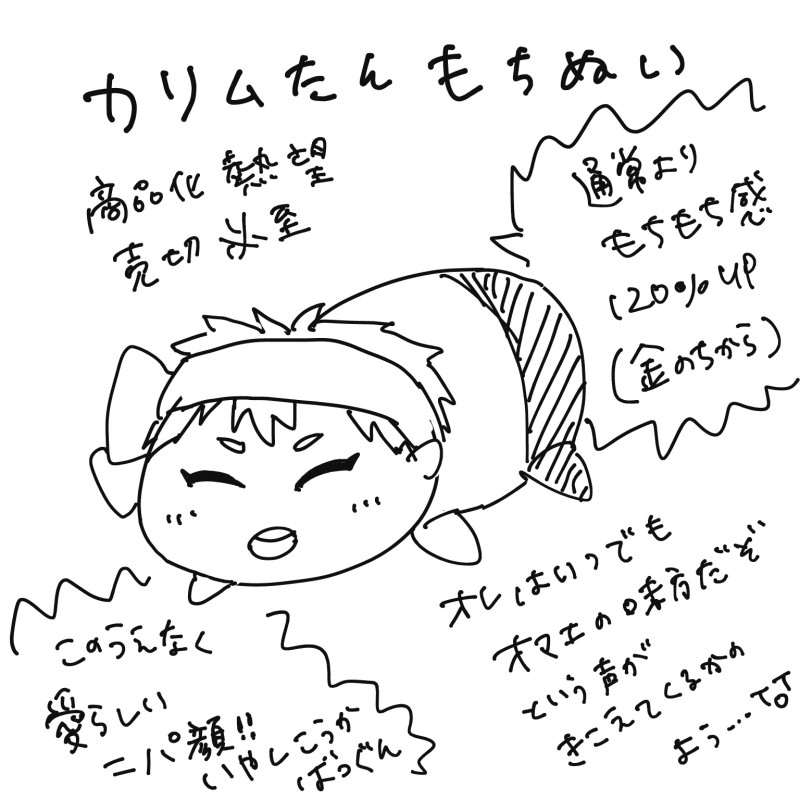 カリムたん もちぬい
商品化 熱望
売切 必至
通常より
もちもち感
120%UP
(金のちから)
このうえなく
愛らしい
ニパ顔!!
いやしこうか
ばつぐん
オレはいつでも
オマエの味方だぞ
という声が
きこえてくるかの
よう…です